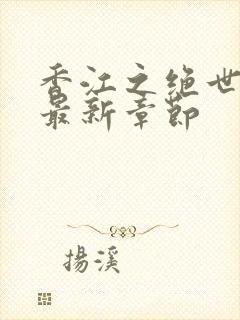 香江之绝世
最新章节
揚溪